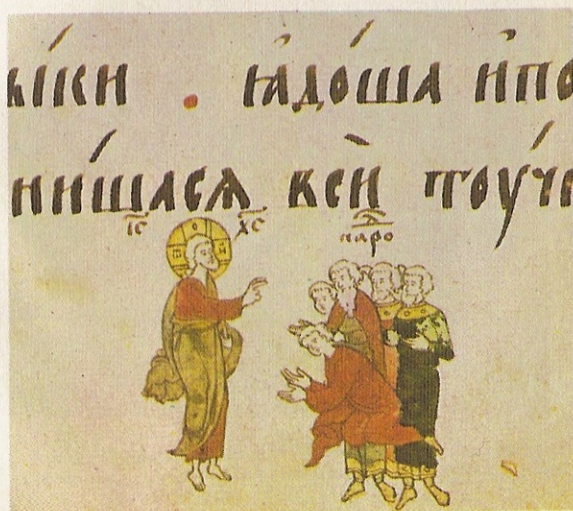 вѣ́ки . ꙗдо́ша и҆по
ни́шасѧ всѝ тоу́чн
і҃с х҃с наро ⷣ